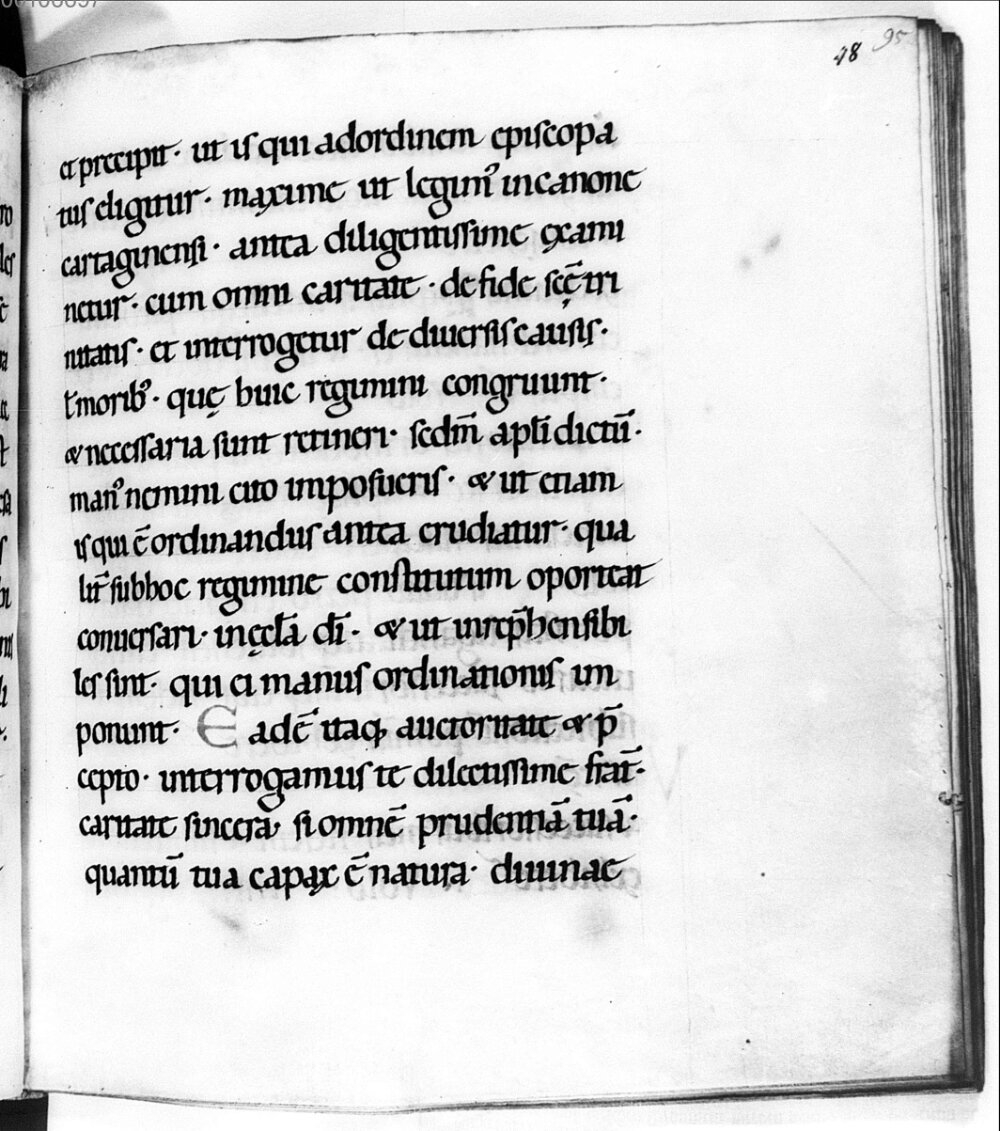 48 95
et precipit · ut is qui ad ordinem episcopa
tus eligitur · maxime ut legimꝰ in canone
cartaginensi · antea diligentissime exami
netur · cum omni caritate · de fide scę̄ tri
nitatis · et interrogetur de diuersis causis ·
ł moribꝰ · quę huic regimini congruunt ·
& necessaria sunt retineri · sedm̄ apłi dictū ·
manꝰ nemini cito imposueris · & ut etiam
is qui ē ordinandus antea erudiatur · qua
lit̄ sub hoc regimine constitutum oporteat
conuersari · in ęcłā dī · & ut inrep̄hensibi
les sint · qui ei manus ordinationis im
ponunt · Eadē itaq; auctoritate & p̄
cepto · interrogamus te dilectissime frat̄ ·
caritate sincera · si omnē prudentiā tuā ·
quantū tua capax ē natura · diuinae